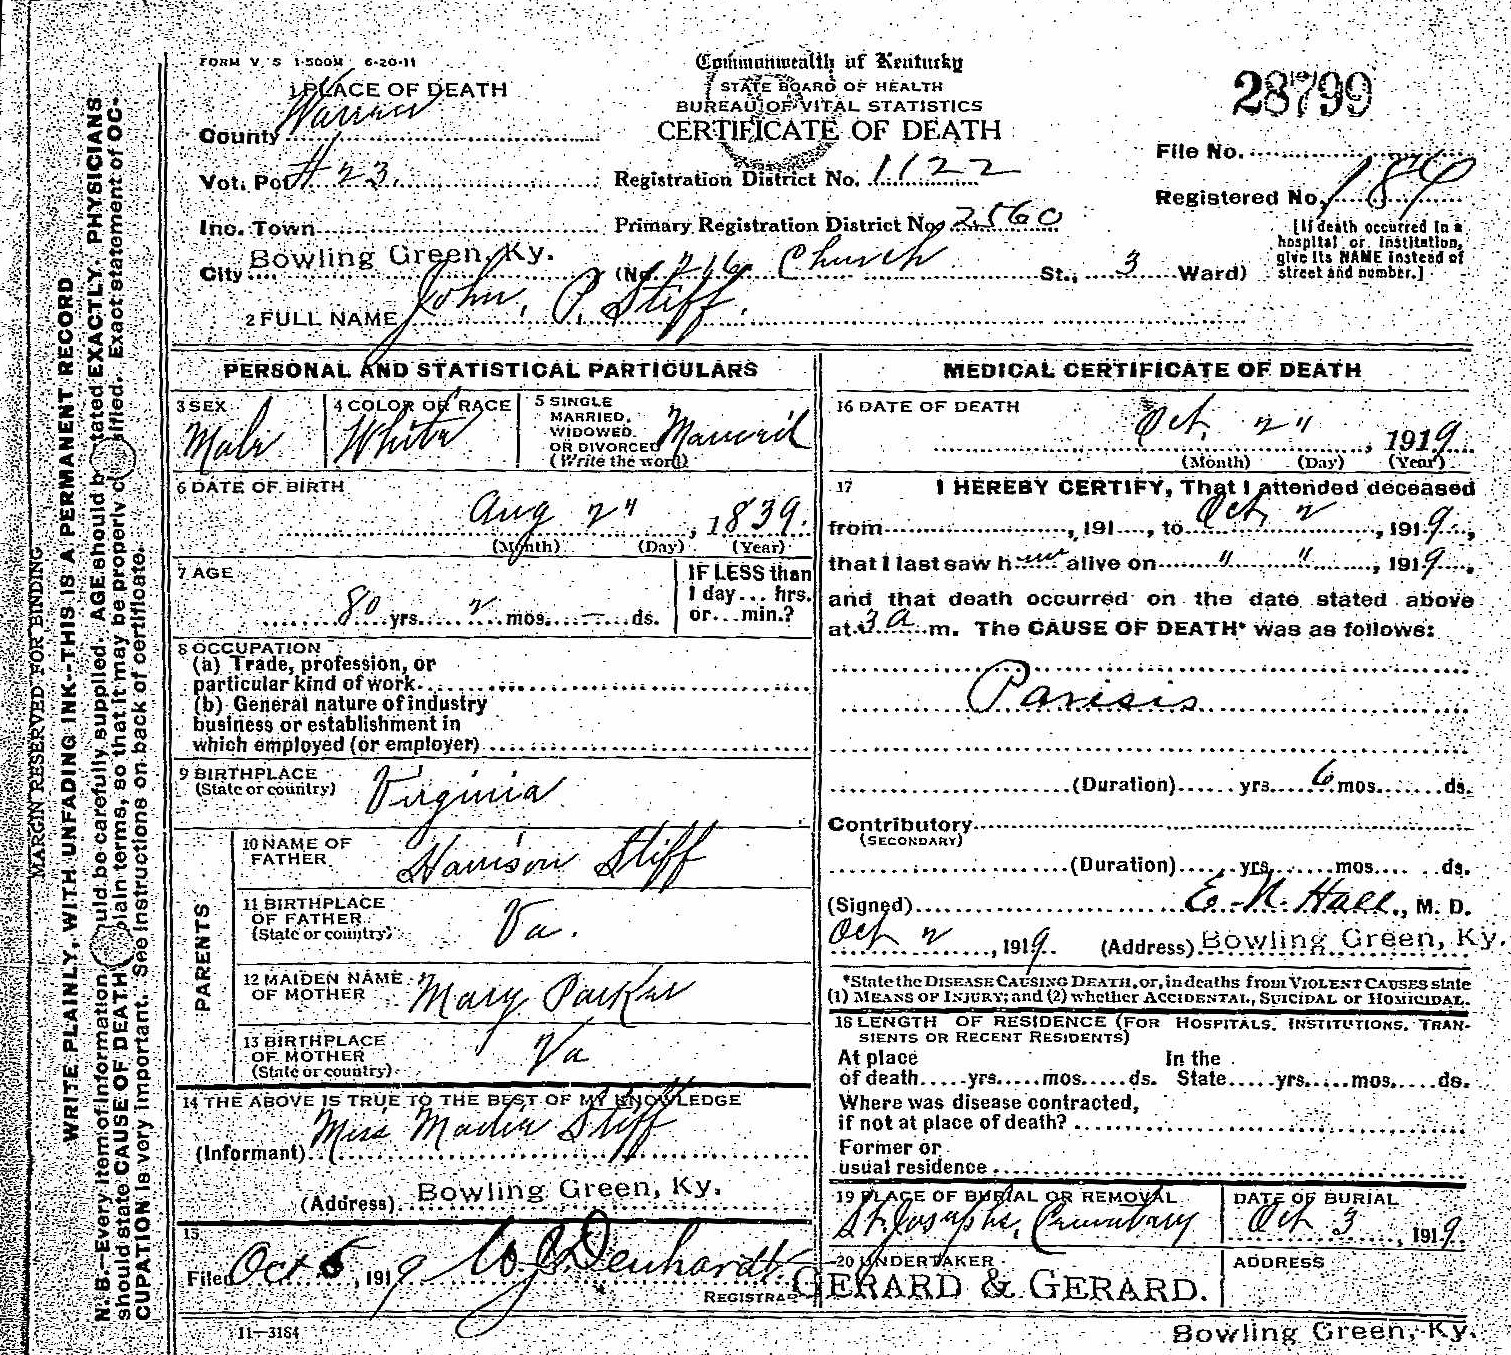 FORM V. S 1-500M 6-20-11
Commonwealth of Kentucky
STATE BOARD OF HEALTH
BUREAU OF VITAL STATISTICS
CERTIFICATE OF DEATH
28799
1 PLACE OF DEATH
County Warren
Vot. Pct # 23.
Registration District No. 1122
File No.
Inc. Town
Primary Registration District No. 2560
Registered No. 184
City Bowling Green, Ky. (No. 216 Church St., 3 Ward)
[If death occurred in a hospital or institution, give its NAME instead of street and number.]
2 FULL NAME John. P. Stiff.
PERSONAL AND STATISTICAL PARTICULARS
3 SEX Male
4 COLOR OR RACE White
5 SINGLE MARRIED, WIDOWED OR DIVORCED (Write the word) Married
6 DATE OF BIRTH
Aug 2", 1839.
(Month) (Day) (Year)
7 AGE
80 yrs. 2 mos. — ds.
IF LESS than 1 day... hrs. or... min.?
8 OCCUPATION
(a) Trade, profession, or
particular kind of work
(b) General nature of industry
business or establishment in
which employed (or employer)
9 BIRTHPLACE
(State or country) Virginia
PARENTS
10 NAME OF FATHER Harrison Stiff
11 BIRTHPLACE OF FATHER (State or country) Va.
12 MAIDEN NAME OF MOTHER Mary Parker
13 BIRTHPLACE OF MOTHER (State or country) Va
14 THE ABOVE IS TRUE TO THE BEST OF MY KNOWLEDGE
(Informant) Miss Stiff
(Address) Bowling Green, Ky.
15
Filed Oct 5, 1919 Denhardt
REGISTRAR
11-3184
MEDICAL CERTIFICATE OF DEATH
16 DATE OF DEATH
Oct. 2", 1919
(Month) (Day) (Year)
17 I HEREBY CERTIFY, That I attended deceased
from , 191 , to Oct 2, 1919,
that I last saw him alive on " ", 1919,
and that death occurred on the date stated above
at 3 a m. The CAUSE OF DEATH* was as follows:
Parisis
(Duration) yrs. 6 mos. ds.
Contributory
(SECONDARY)
(Duration) yrs. mos. ds.
(Signed) E. N. Hall, M. D.
Oct 2, 1919. (Address) Bowling Green, Ky.
*State the DISEASE CAUSING DEATH, or, in deaths from VIOLENT CAUSES state
(1) MEANS OF INJURY; and (2) whether ACCIDENTAL, SUICIDAL or HOMICIDAL.
18 LENGTH OF RESIDENCE (FOR HOSPITALS, INSTITUTIONS, TRANSIENTS OR RECENT RESIDENTS)
At place of death yrs. mos. ds. In the State yrs. mos. ds.
Where was disease contracted,
if not at place of death?
Former or
usual residence
19 PLACE OF BURIAL OR REMOVAL
St. Josephs,
DATE OF BURIAL
Oct 3, 1919.
20 UNDERTAKER
GERARD & GERARD.
ADDRESS
Bowling Green, Ky.
MARGIN RESERVED FOR BINDING
WRITE PLAINLY, WITH UNFADING INK--THIS IS A PERMANENT RECORD
N. B.—Every item of information should be carefully supplied. AGE should be stated EXACTLY. PHYSICIANS
should state CAUSE OF DEATH in plain terms, so that it may be properly classified. Exact statement of OC-
CUPATION is very important. See instructions on back of certificate.